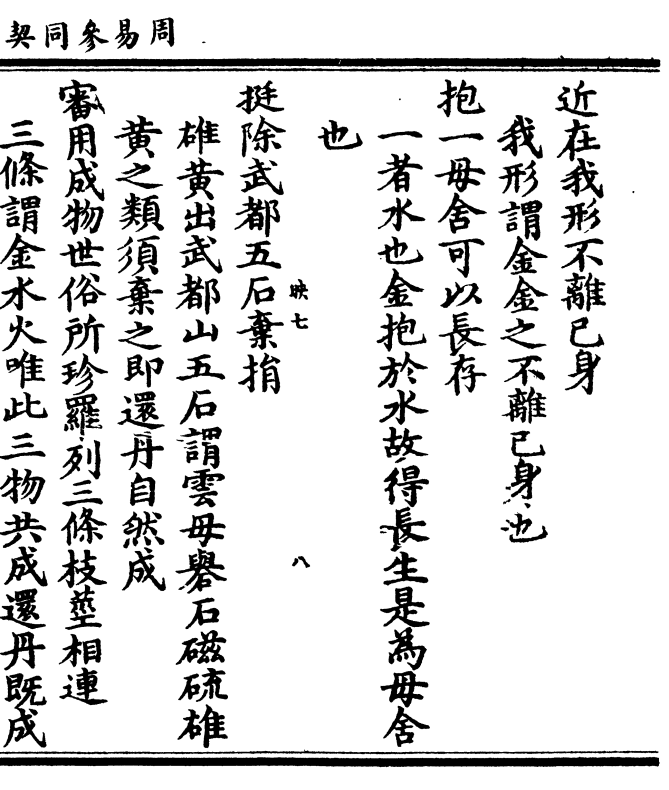 周易參同契
近在我形不離己身
我形謂金金之不離己身也
抱一毋舍可以長存
一者水也金抱於水故得長生是為毋舍
也
挺除武都五石棄捐
映七
八
雄黃出武都山五石謂雲母礜石磁硫雄
黃之類須棄之即還丹自然成
審用成物世俗所珍羅列三條枝莖相連
三條謂金水火唯此三物共成還丹既成